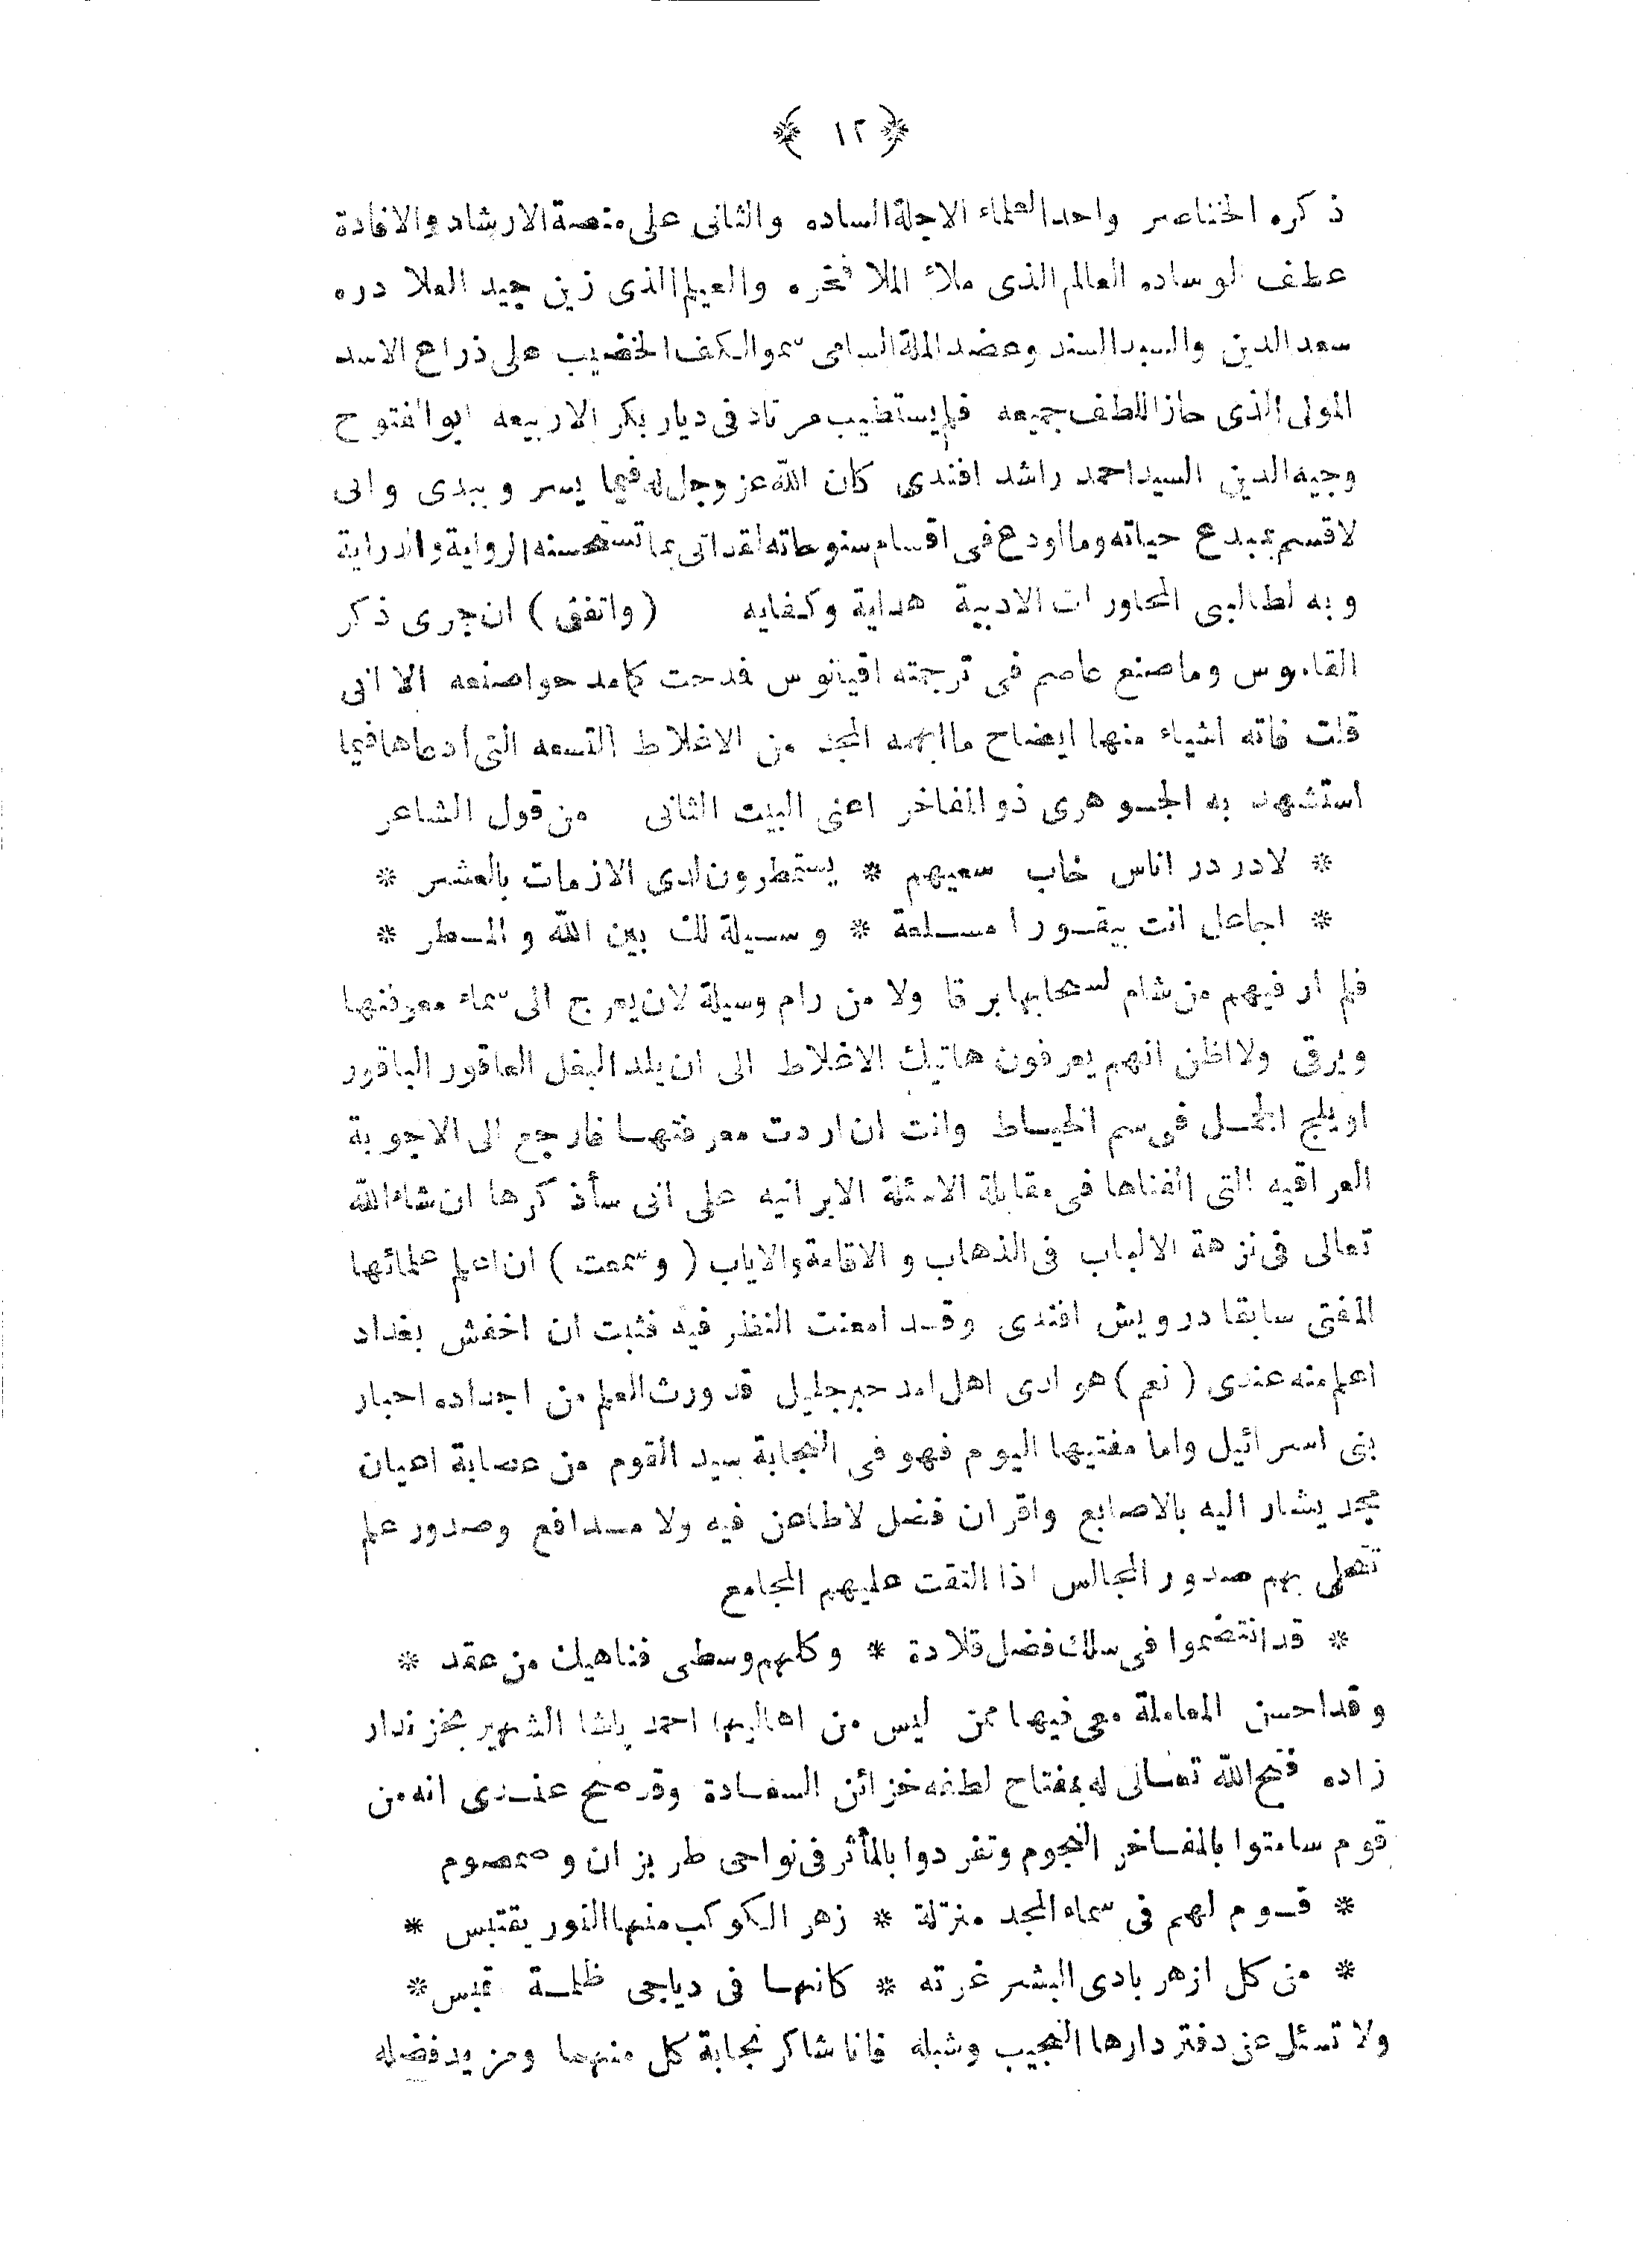 ﴿ ١٢ ﴾
ذكره الخناصر واحد العلماء الاجلة الساده والثانى على منصة الارشاد والافادة
عطف الوساده العالم الذى ملأ الملا فخره والعيلم الذى زين جيد العلا دره
سعد الدين والسيد السند وعضد الملة السامى سمو الكف الخضيب على ذراع الاسد
المولى الذى حاز اللطف جميعه فلم يستطيب مرتاد فى ديار بكر الا ربيعه ابو الفتوح
وجيه الدين السيد احمد راشد افندى كان الله عز وجل له فيما يسر ويبدى وانى
لاقسم بمبدع حياته وما اودع فى اقسام سنوحاته لقد اتى بما تستحسنه الرواية والدراية
وبه لطالبى المحاورات الادبية هداية وكفايه (واتفق) ان جرى ذكر
القاموس وما صنع عاصم فى ترجمته اقيانوس فدحت كما مدحوا صنعه الا انى
قلت فاته اشياء منها ايضاح ما ابهمه المجد من الاغلاط التسعه التى ادعاها فيما
استشهد به الجوهرى ذو المفاخر اعنى البيت الثانى من قول الشاعر
* لا در در اناس خاب سعيهم * يستمطرون لدى الازمات بالعشر *
* اجاعل انت بيقورا مسلعة * وسيلة لك بين الله والمطر *
فلم ار فيهم من شام لسحابها برقا ولا من رام وسيلة لان يعرج الى سماء معرفتها
ويرقى ولا اظن انهم يعرفون هاتيك الاغلاط الى ان يلد البغل العاقور الباقور
او يلج الجمل فى سم الخياط وانت ان اردت معرفتها فارجع الى الاجوبة
العراقيه التى الفناها فى مقابلة الاسئلة الايرانيه على انى سأذكرها ان شاء الله
تعالى فى نزهة الالباب فى الذهاب والاقامة والاياب (وسمعت) ان اعلم علمائها
المفتى سابقا درويش افندى وقد امعنت النظر فيه فثبت ان اخفش بغداد
اعلم منه عندى (نعم) هو لدى اهل امد حبر جليل قد ورث العلم من اجداده احبار
بنى اسرائيل واما مفتيها اليوم فهو فى النجابة سيد القوم من عصابة اعيان
مجد يشار اليه بالاصابع واقران فضل لا طاعن فيه ولا مدافع وصدور علم
تتحلى بهم صدور المجالس اذا التقت عليهم المجامع
* قد انتضموا فى سلك فضل قلادة * وكلهم وسطى فناهيك من عقد *
وقد احسن المعاملة معى فيها ممن ليس من اهاليها احمد پاشا الشهير بخزندار
زاده فتح الله تعالى له بمفتاح لطفه خزائن السعادة وقد صح عندى انه من
قوم سامتوا بالمفاخر النجوم وتفردوا بالمأثر فى نواحى طربزان وصمصوم
* قوم لهم فى سماء المجد منزلة * زهر الكوكب منها النور يقتبس *
* من كل ازهر بادى البشر غرته * كانها فى دياجى ظلمة قبس *
ولا تسئل عن دفتردارها النجيب وشبله فانا شاكر نجابة كل منهما ومزيد فضله